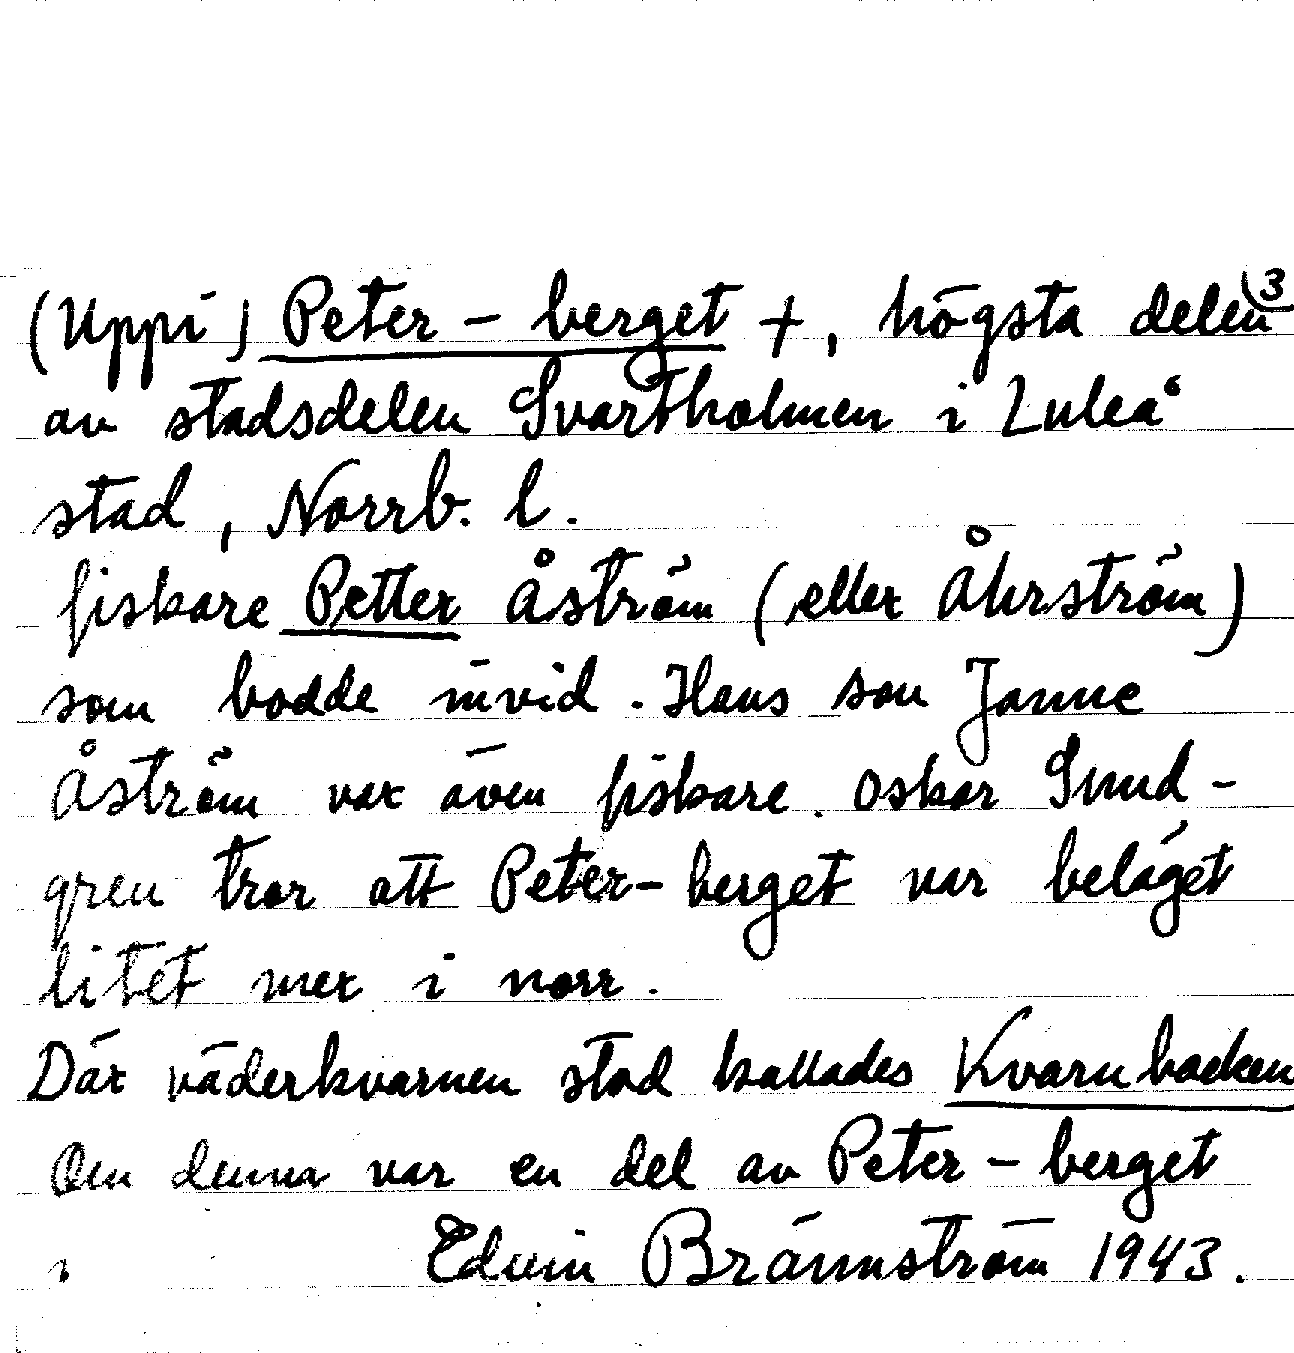 (Uppi) Peter - berget +, högsta delen 3
av stadsdelen Svartholmen i Luleå
stad, Norrb. l.
fiskare Petter Åström (eller Åhrström)
som bodde invid. Hans son Janne
Åström var även fiskare. Oskar Sund-
gren tror att Peter-berget var beläget
litet mer i norr.
Där väderkvarnen stod kallades Kvarnbacken
Om denna var en del av Peter - berget
Edvin Brännström 1943.